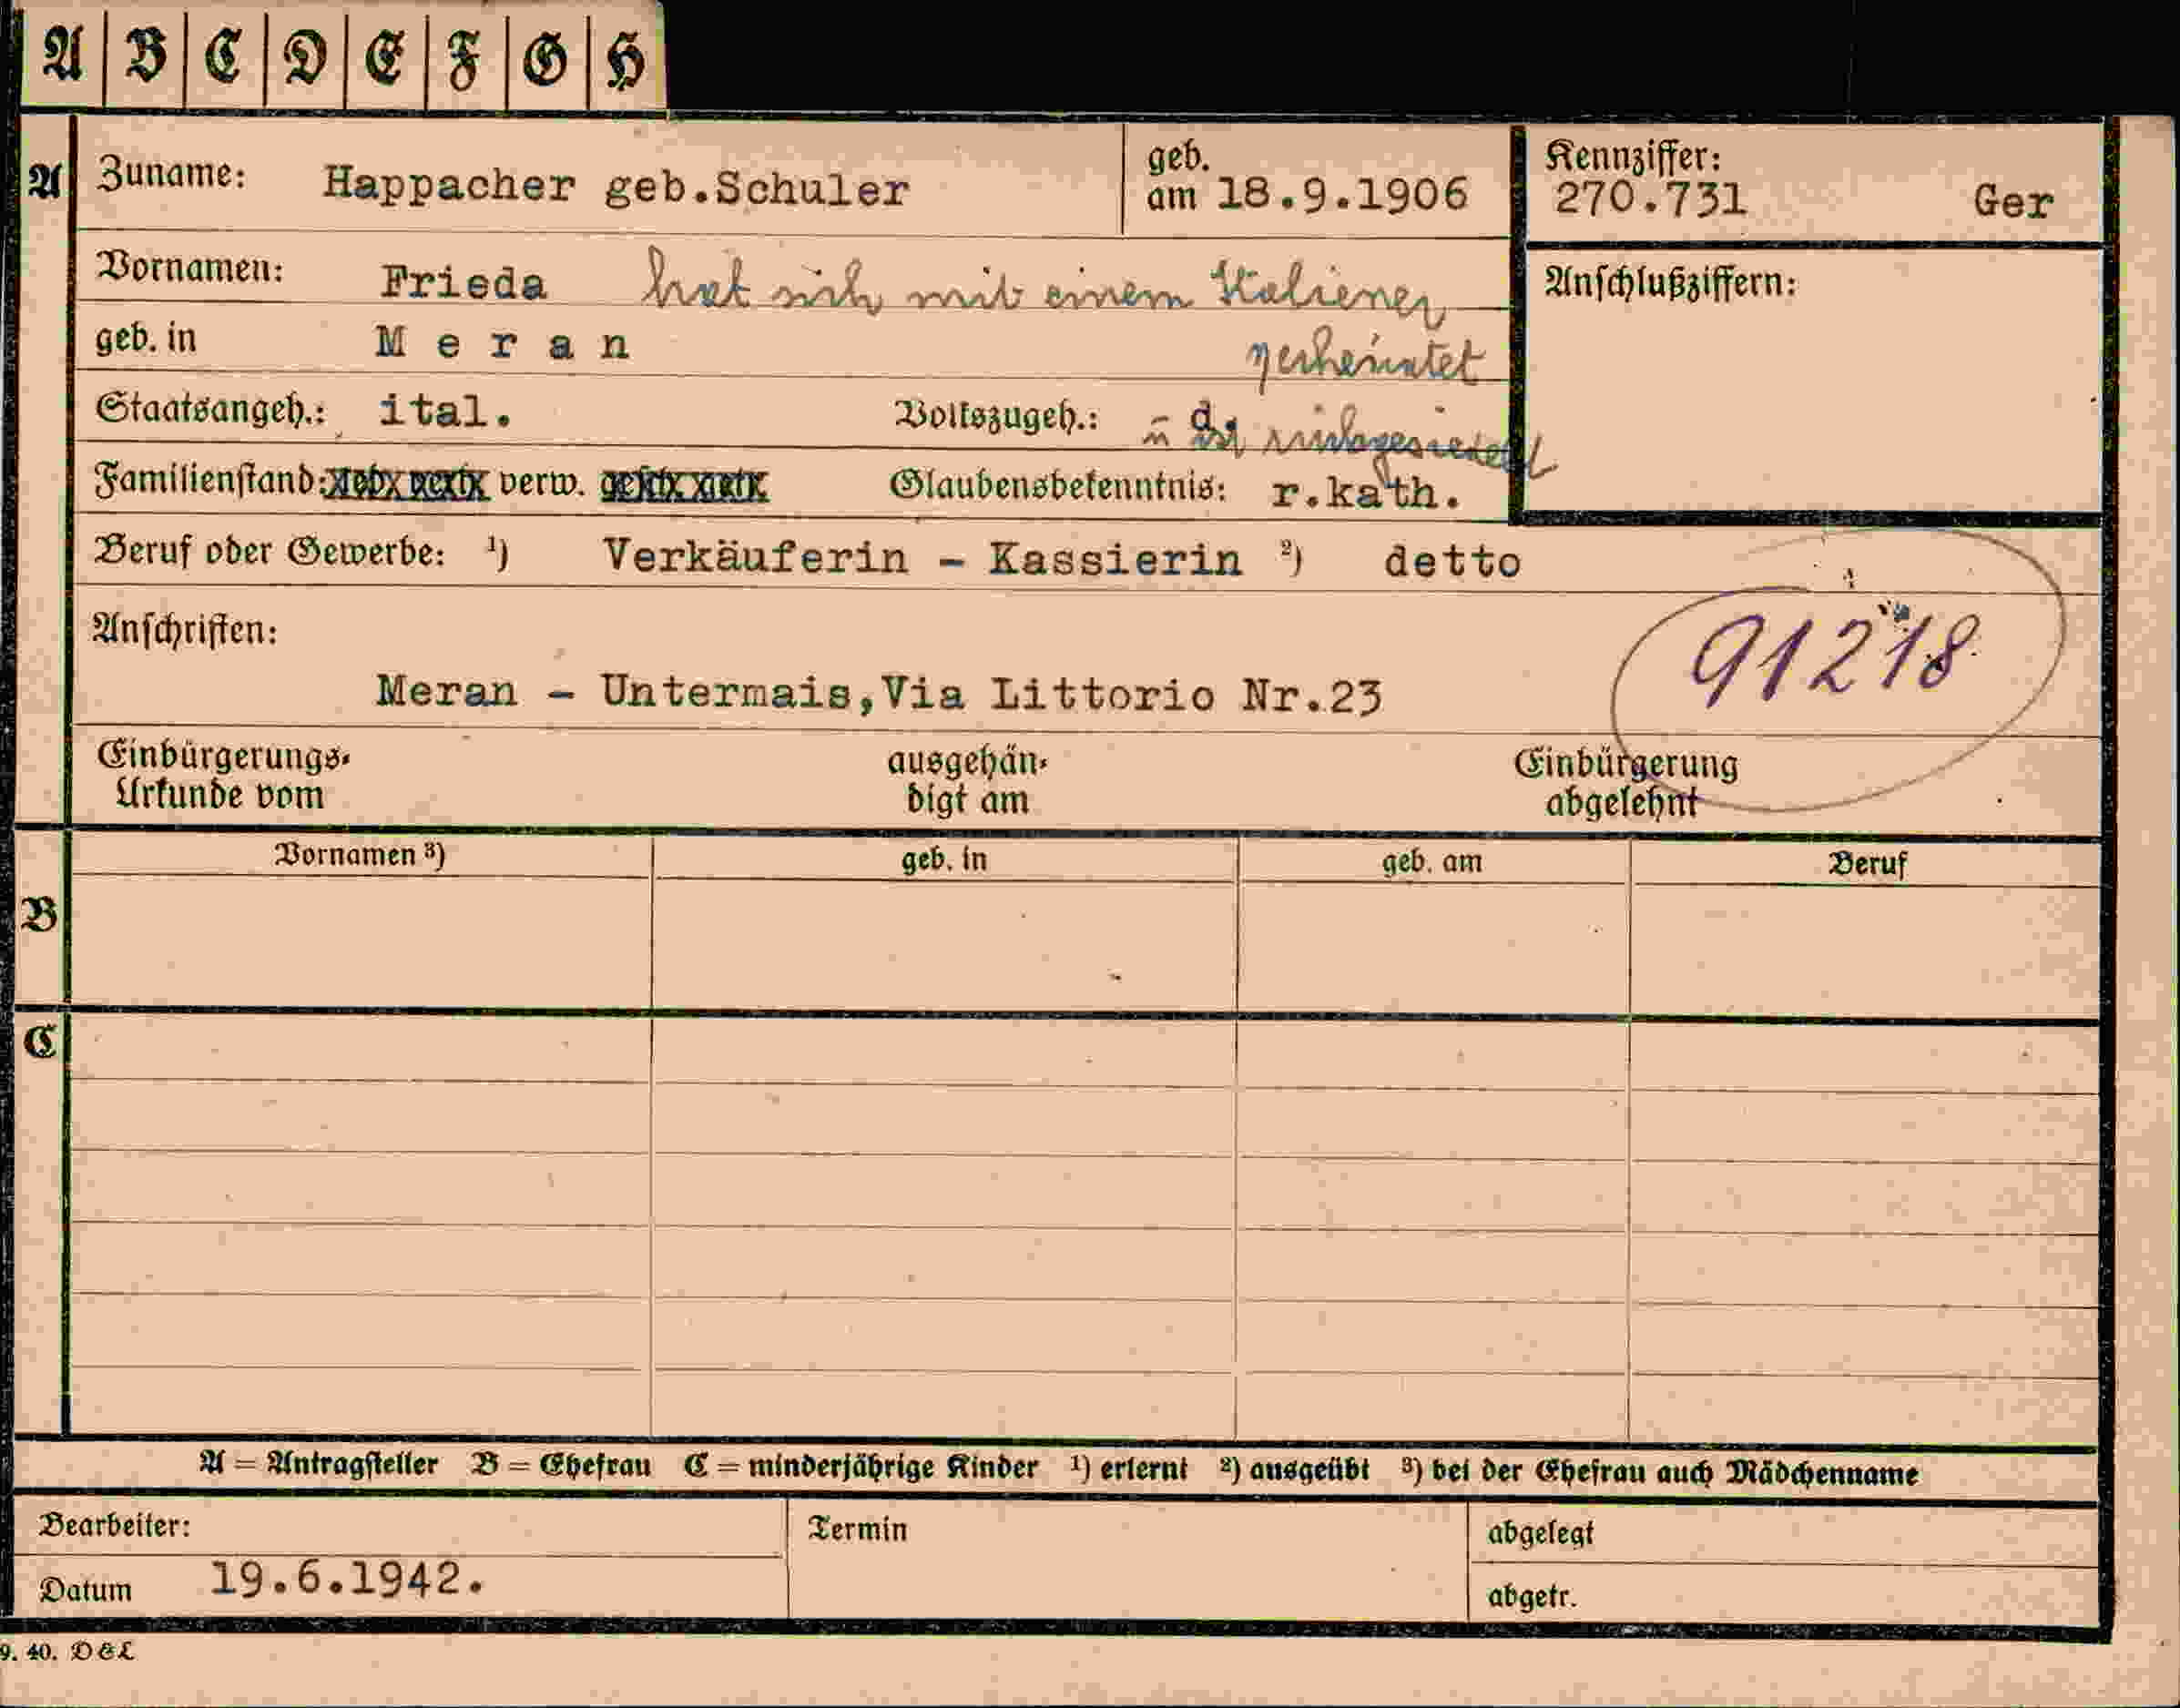 A B C D E F G H
A Zuname: Happacher geb.Schuler geb. am 18.9.1906 Kennziffer: 270.731 Ger
Vornamen: Frieda hat sich mit einem Italiener Anschlußziffern:
geb. in Meran verheiratet
Staatsangeh.: ital. Volkszugeh.: d. ist rückgesiedelt
Familienstand: verw. Glaubensbekenntnis: r.kath.
Beruf oder Gewerbe: ¹) Verkäuferin - Kassierin ²) detto
Anschriften: 91218
Meran - Untermais,Via Littorio Nr.23
Einbürgerungs- ausgehän- Einbürgerung
Urkunde vom digt am abgelehnt
Vornamen ³) geb. in geb. am Beruf
B
C
A = Antragsteller B = Ehefrau C = minderjährige Kinder ¹) erlernt ²) ausgeübt ³) bei der Ehefrau auch Mädchenname
Bearbeiter: Termin abgelegt
Datum 19.6.1942. abgetr.
9. 40. D&L